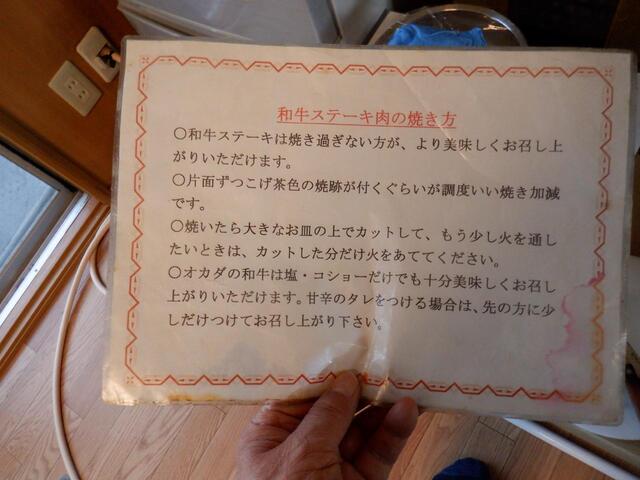 和牛ステーキ肉の焼き方
○和牛ステーキは焼き過ぎない方が、より美味しくお召し上
がりいただけます。
○片面ずつこげ茶色の焼跡が付くぐらいが調度いい焼き加減
です。
○焼いたら大きなお皿の上でカットして、もう少し火を通し
たいときは、カットした分だけ火をあててください。
○オカダの和牛は塩・コショーだけでも十分美味しくお召し
上がりいただけます。甘辛のタレをつける場合は、先の方に少
しだけつけてお召し上がり下さい。